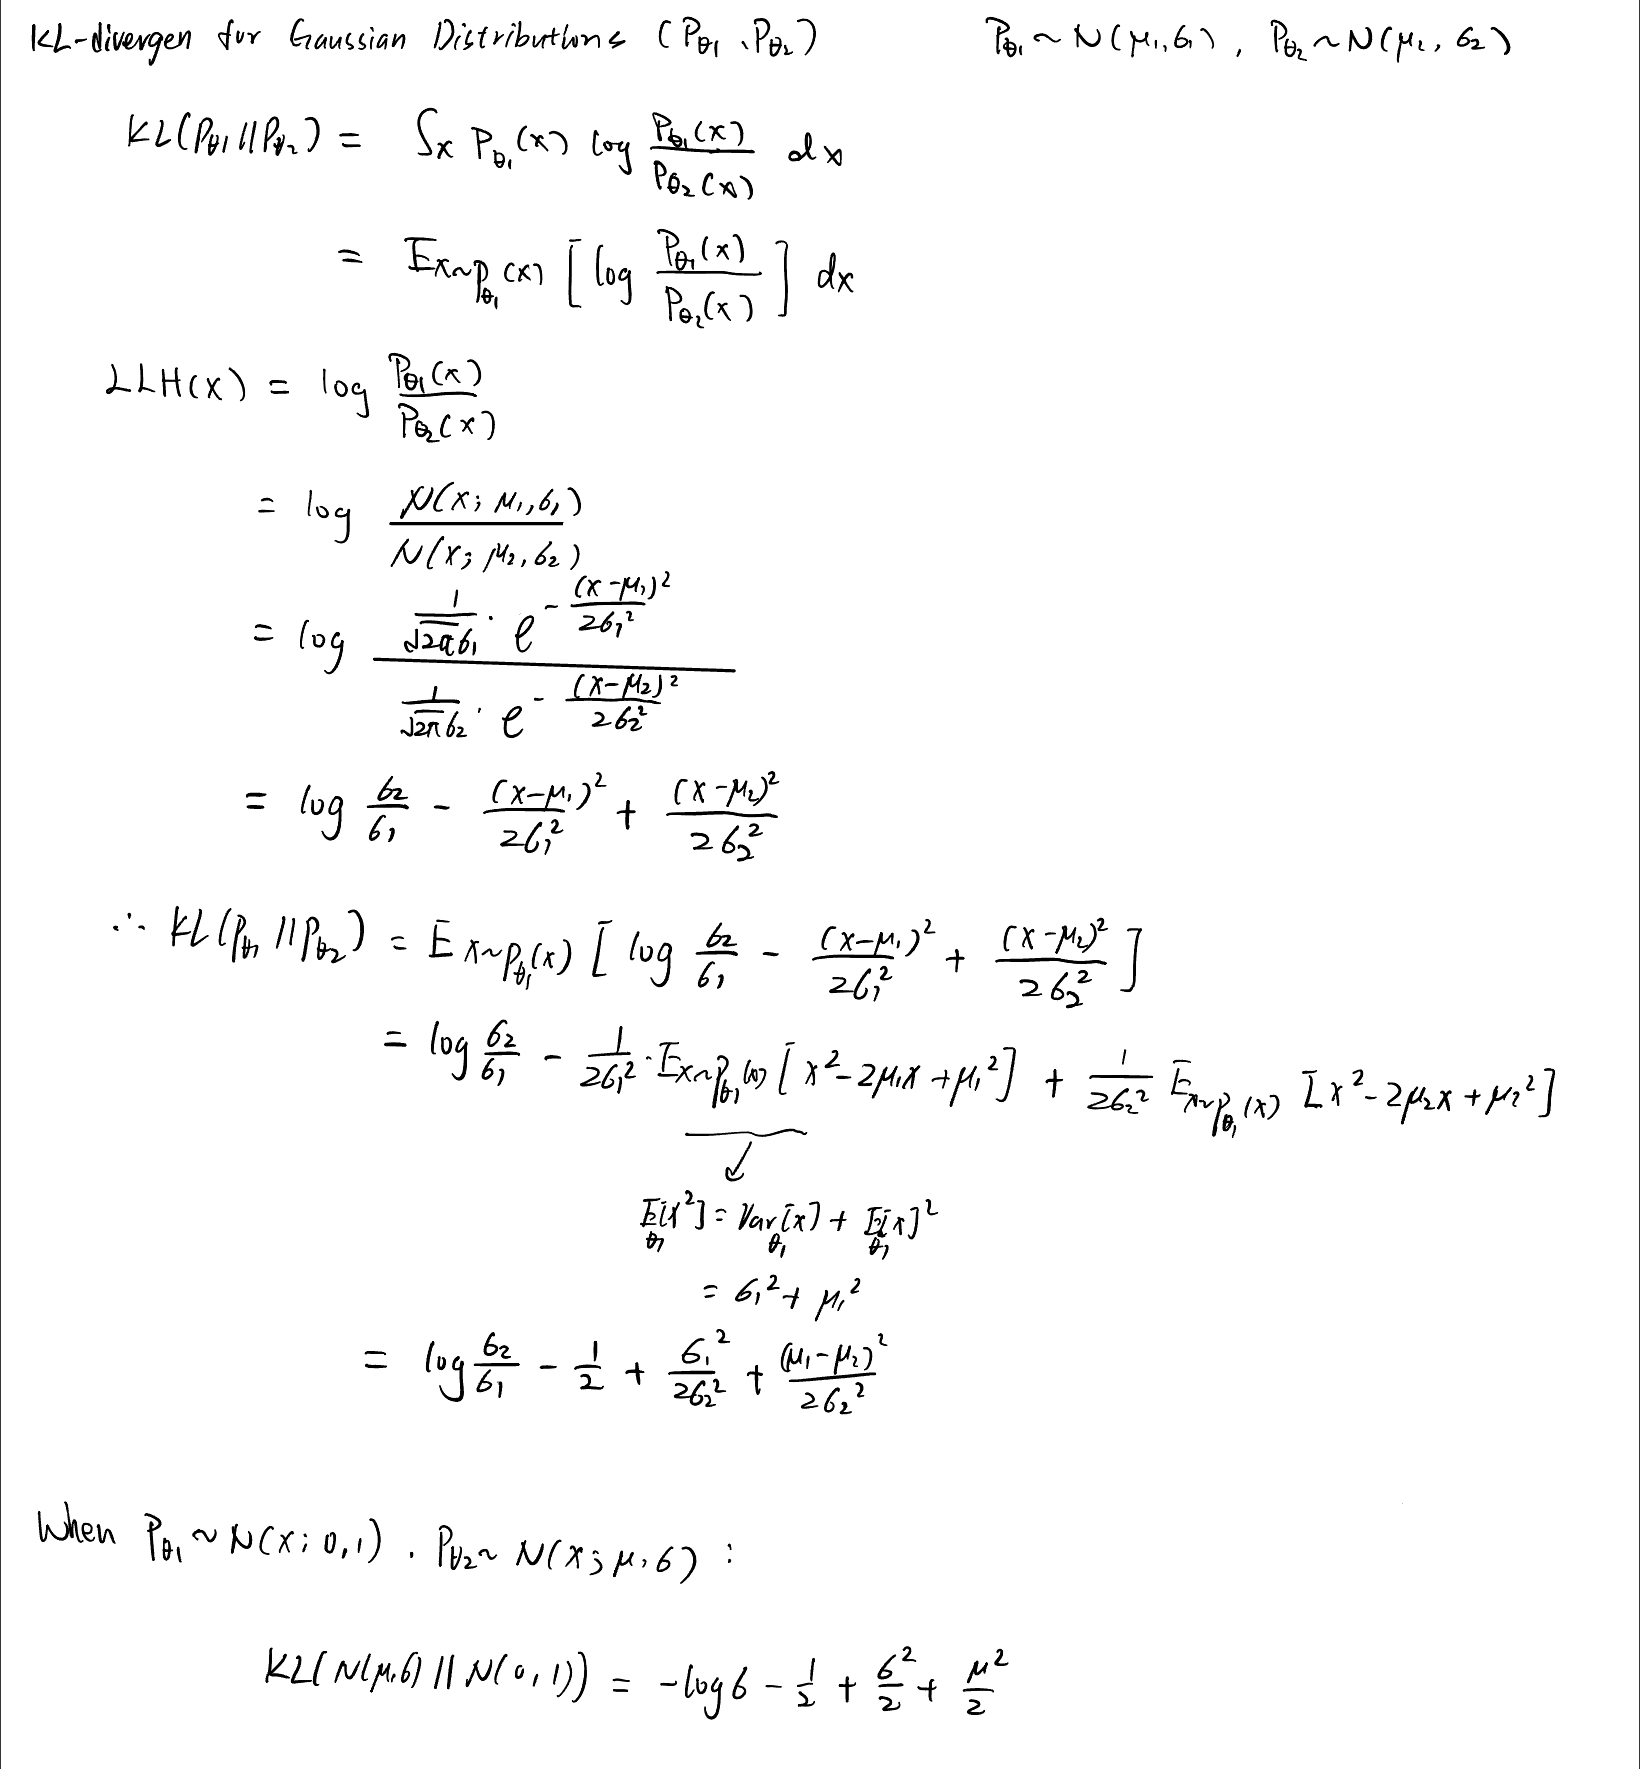 KL-divergen for Gaussian Distributions (P_θ1、P_θ2)    P_θ1 ~ N(μ₁, σ₁), P_θ2 ~ N(μ₂, σ₂)
KL(P_θ1 || P_θ2) = ∫_x P_θ1(x) log P_θ1(x) / P_θ2(x) dx
= E_x~P_θ1(x) [ log P_θ1(x) / P_θ2(x) ] dx
LLH(x) = log P_θ1(x) / P_θ2(x)
= log N(x; μ₁, σ₁) / N(x; μ₂, σ₂)
= log (1/(√2π σ₁) · e^(-(x-μ₁)²/2σ₁²)) / (1/(√2π σ₂) · e^(-(x-μ₂)²/2σ₂²))
= log σ₂/σ₁ - (x-μ₁)²/2σ₁² + (x-μ₂)²/2σ₂²
∴ KL(P_θ1 || P_θ2) = E_x~P_θ1(x) [ log σ₂/σ₁ - (x-μ₁)²/2σ₁² + (x-μ₂)²/2σ₂² ]
= log σ₂/σ₁ - 1/2σ₁² · E_x~P_θ1(x) [x² - 2μ₁x + μ₁²] + 1/2σ₂² E_x~P_θ1(x) [x² - 2μ₂x + μ₂²]
E_θ1[x²] = Var_θ1[x] + E_θ1[x]²
= σ₁² + μ₁²
= log σ₂/σ₁ - 1/2 + σ₁²/2σ₂² + (μ₁-μ₂)²/2σ₂²
When P_θ1 ~ N(x; 0, 1). P_θ2 ~ N(x; μ, σ) :
KL(N(μ,σ) || N(0,1)) = -log σ - 1/2 + σ²/2 + μ²/2